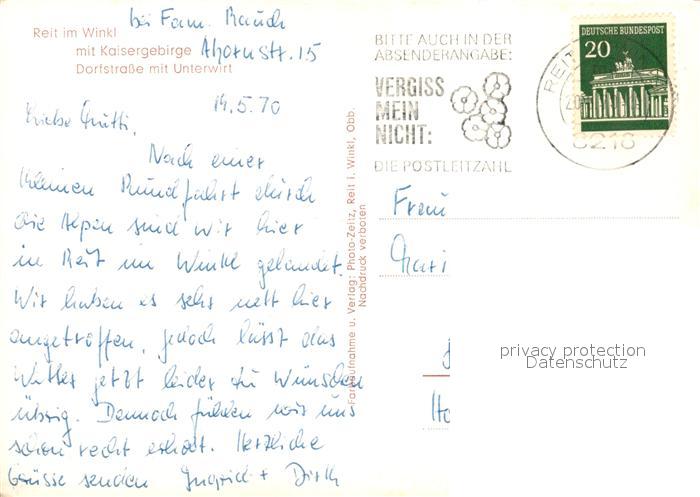 bei Fam. Rauch
Ahornstr. 15
Reit im Winkl
mit Kaisergebirge
Dorfstraße mit Unterwirt
19.5.70
Liebe Mutti,
Nach einer
kleinen Rundfahrt durch
die Alpen sind wir hier
in Reit im Winkl gelandet.
Wir haben es sehr nett hier
angetroffen, jedoch lässt das
Wetter jetzt leider zu wünschen
übrig. Dennoch fühlen wir uns
schon recht erholt. Herzliche
Grüsse senden Ingrid + Dirk
Farbaufnahme u. Verlag: Photo-Zeitz, Reit i. Winkl, Obb.
Nachdruck verboten
BITTE AUCH IN DER
ABSENDERANGABE:
VERGISS
MEIN
NICHT:
DIE POSTLEITZAHL
DEUTSCHE BUNDESPOST
20
REIT
8216
Frau
Mari
Ho
privacy protection
Datenschutz